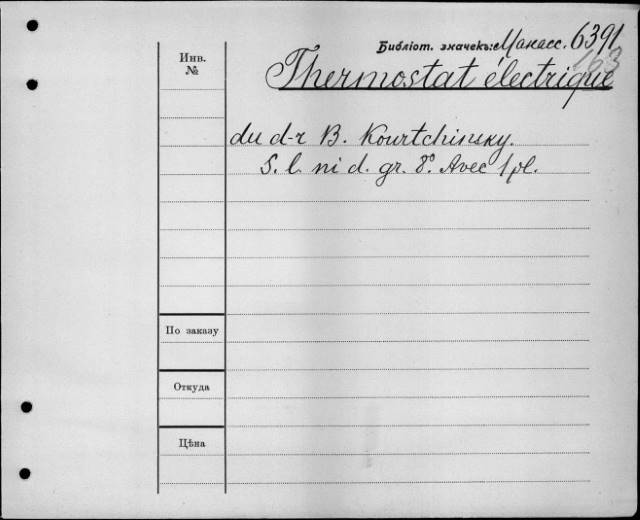 Библіот. значекъ: Манасс. 6391
163
Инв.
№
Thermostat électrique
du d-r B. Kourtchinsky.
S. l. ni d. gr. 8° Avec 1 pl.
По заказу
Откуда
Цѣна